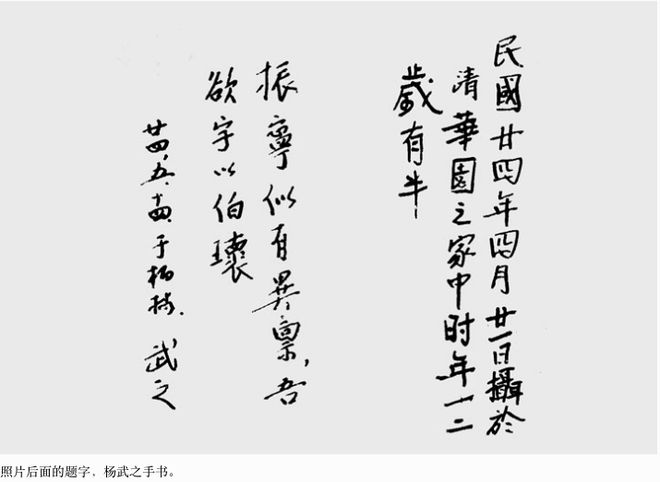 民國廿四年四月廿一日攝於
清華園之家中时年十二
歲有半
振寧似有異稟,吾
欲字以伯瓌
廿四、五、十四于柏林. 武之
照片后面的题字,杨武之手书。